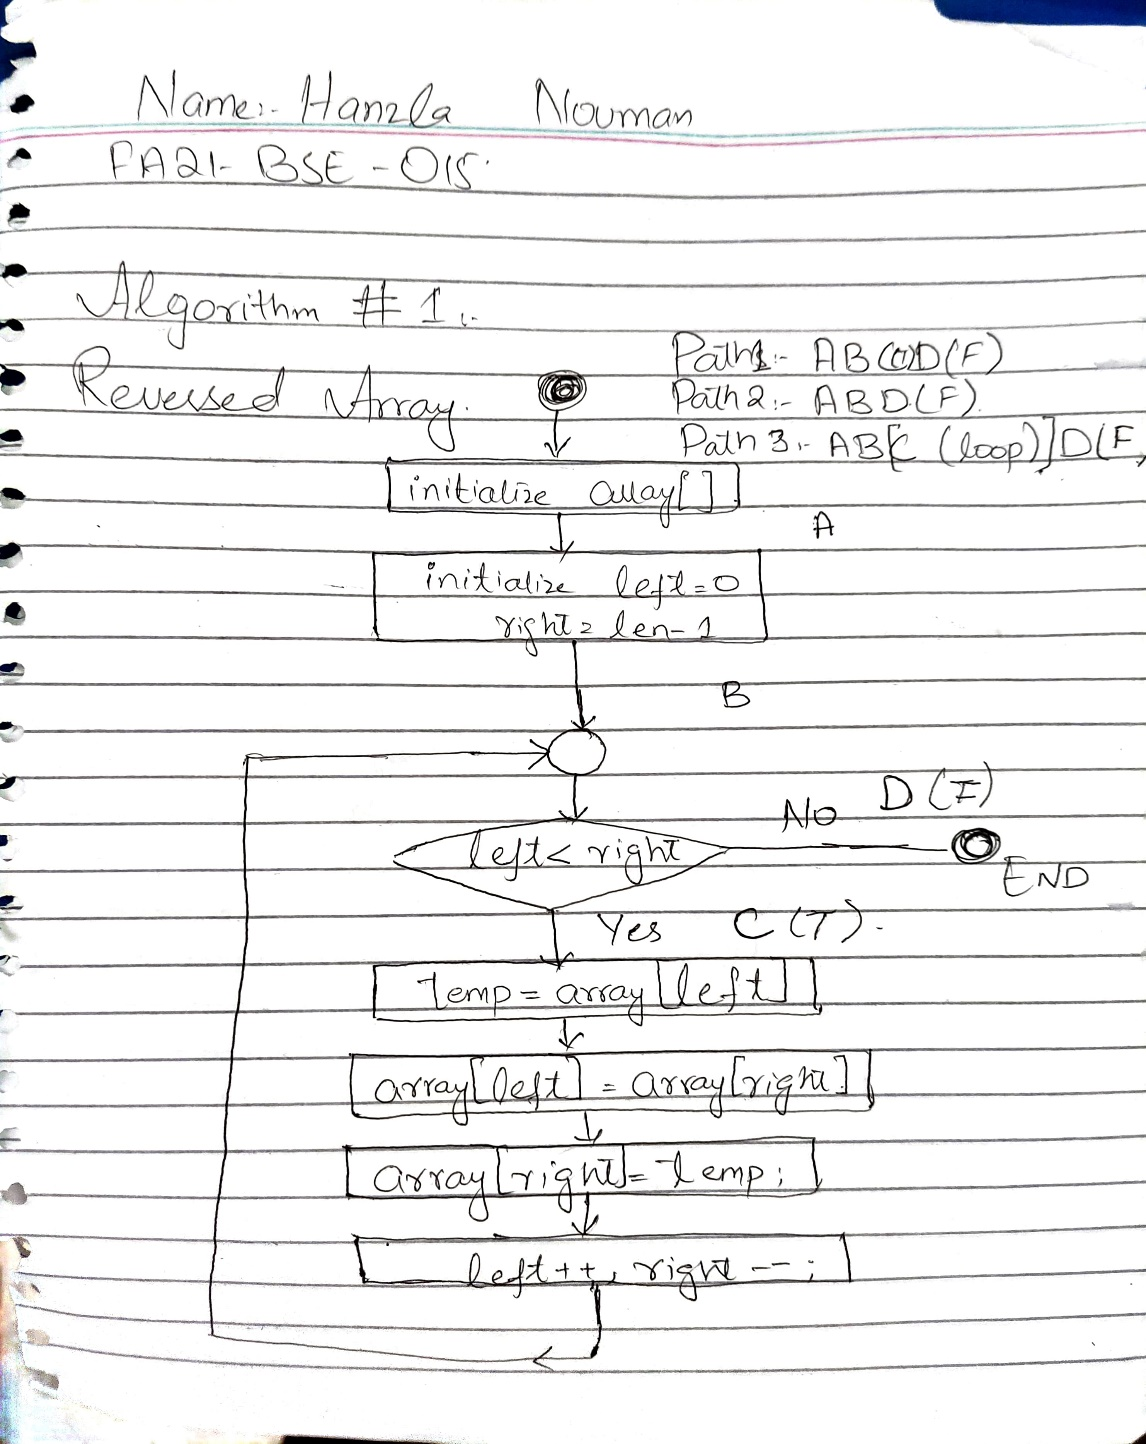 Name:- Hanzla Nouman
FA21- BSE - 015.
Algorithm # 1:-
Reversed Array.
Path1:- AB(C)D(F)
Path2:- ABD(F).
Path 3:- AB[C (loop)]D(F,
initialize array[]
A
initialize left=0
right= len-1
B
left< right
No D(F)
END
Yes C(T).
temp= array[left]
array[left] = array[right]
array[right]= temp;
left++, right--;